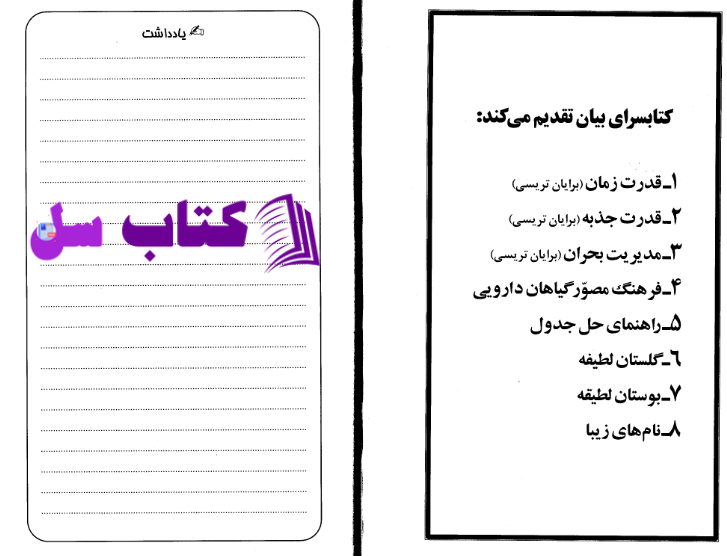 کتابسرای بیان تقدیم می‌کند:
۱ـ قدرت زمان (برایان تریسی)
۲ـ قدرت جذبه (برایان تریسی)
۳ـ مدیریت بحران (برایان تریسی)
۴ـ فرهنگ مصوّر گیاهان دارویی
۵ـ راهنمای حل جدول
۶ـ گلستان لطیفه
۷ـ بوستان لطیقه
۸ـ نام‌های زیبا
یادداشت
کتاب سل